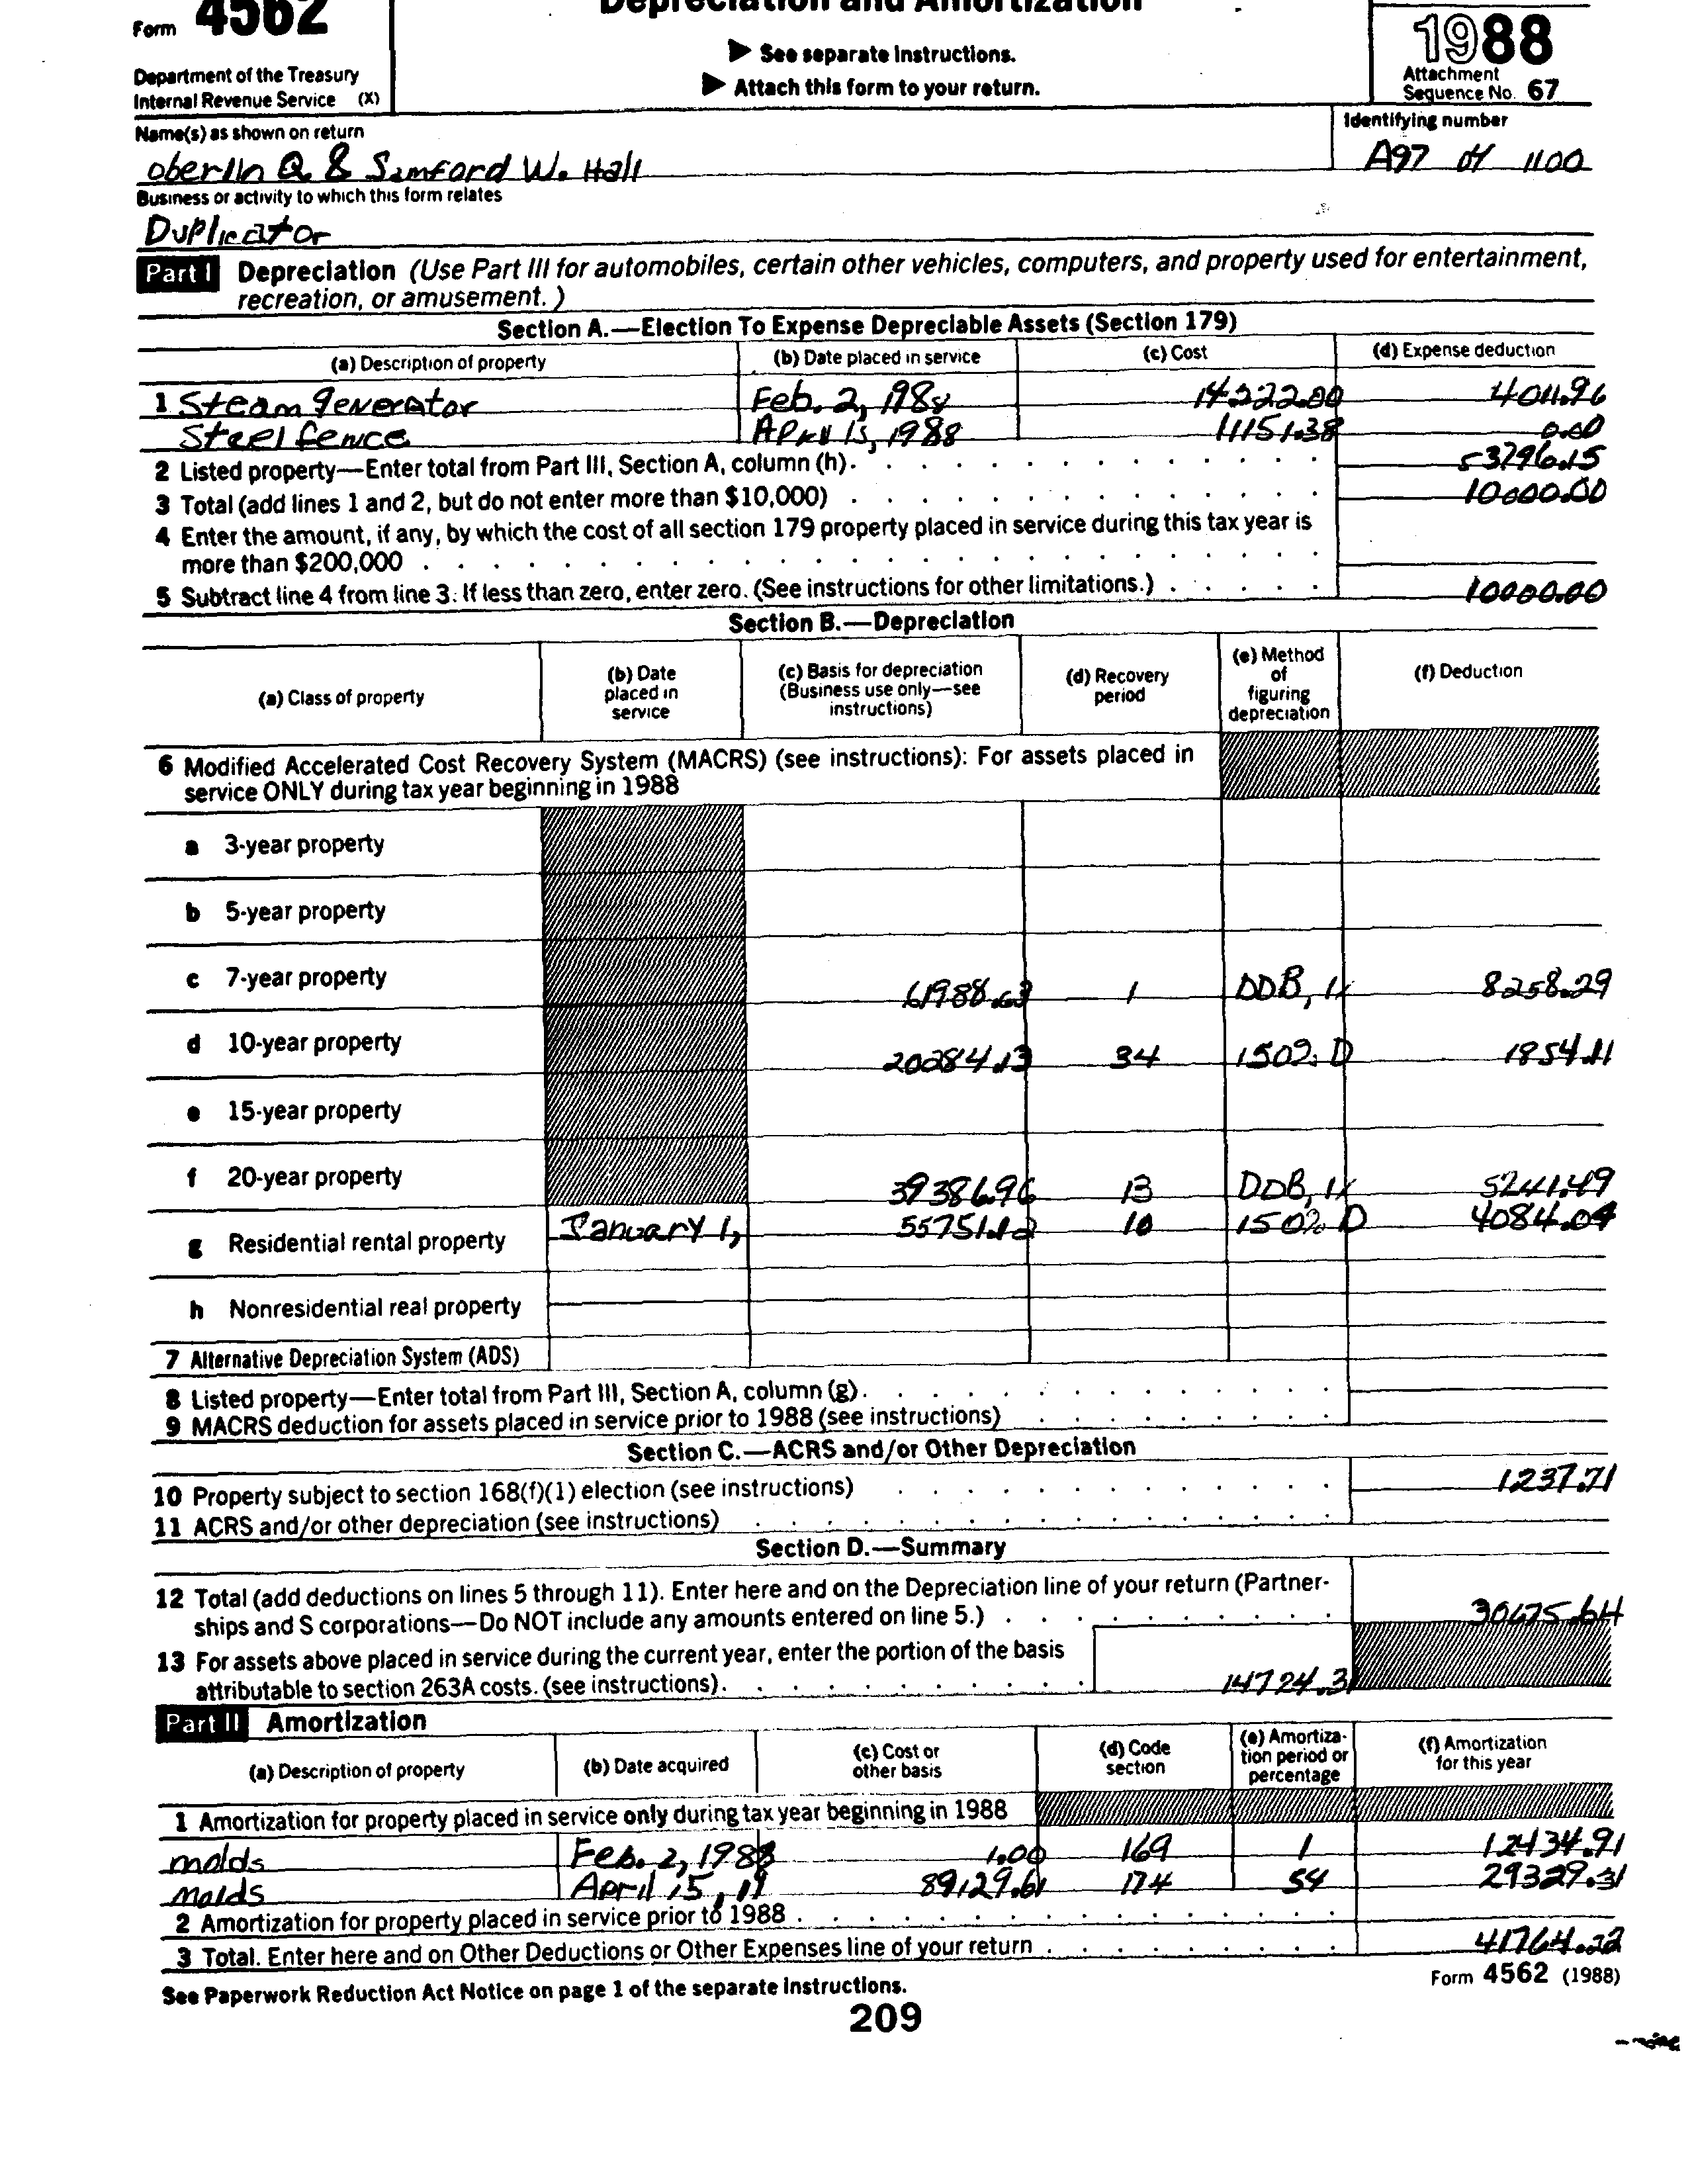 Form 4562
Depreciation and Amortization
▶ See separate instructions.
▶ Attach this form to your return.
1988
Attachment
Sequence No. 67
Department of the Treasury
Internal Revenue Service (X)
Name(s) as shown on return
Identifying number
oberlin Q & Samford W. Hall
A97 04 1100
Business or activity to which this form relates
Duplicator
Part I Depreciation (Use Part III for automobiles, certain other vehicles, computers, and property used for entertainment,
recreation, or amusement.)
Section A.—Election To Expense Depreciable Assets (Section 179)
(a) Description of property (b) Date placed in service (c) Cost (d) Expense deduction
1 Steam generator Feb. 2, 1988 14222.00 4011.96
Steel fence April 15, 1988 11151.38 0.00
2 Listed property—Enter total from Part III, Section A, column (h). 53796.15
3 Total (add lines 1 and 2, but do not enter more than $10,000) 10000.00
4 Enter the amount, if any, by which the cost of all section 179 property placed in service during this tax year is
more than $200,000
5 Subtract line 4 from line 3. If less than zero, enter zero. (See instructions for other limitations.) 10000.00
Section B.—Depreciation
(a) Class of property (b) Date placed in service (c) Basis for depreciation (Business use only—see instructions) (d) Recovery period (e) Method of figuring depreciation (f) Deduction
6 Modified Accelerated Cost Recovery System (MACRS) (see instructions): For assets placed in
service ONLY during tax year beginning in 1988
a 3-year property
b 5-year property
c 7-year property 61988.63 1 DDB, 8258.29
d 10-year property 20284.13 34 150% D 1854.11
e 15-year property
f 20-year property 39386.96 13 DDB, 5241.49
g Residential rental property January 1, 55751.12 10 150% D 4084.04
h Nonresidential real property
7 Alternative Depreciation System (ADS)
8 Listed property—Enter total from Part III, Section A, column (g).
9 MACRS deduction for assets placed in service prior to 1988 (see instructions)
Section C.—ACRS and/or Other Depreciation
10 Property subject to section 168(f)(1) election (see instructions) 1237.71
11 ACRS and/or other depreciation (see instructions)
Section D.—Summary
12 Total (add deductions on lines 5 through 11). Enter here and on the Depreciation line of your return (Partner-
ships and S corporations—Do NOT include any amounts entered on line 5.) 30675.64
13 For assets above placed in service during the current year, enter the portion of the basis
attributable to section 263A costs. (see instructions). 14724.3
Part II Amortization
(a) Description of property (b) Date acquired (c) Cost or other basis (d) Code section (e) Amortiza-tion period or percentage (f) Amortization for this year
1 Amortization for property placed in service only during tax year beginning in 1988
molds Feb. 2, 1988 1.00 169 1 12434.91
Molds April 15, 19 89129.61 174 54 29329.31
2 Amortization for property placed in service prior to 1988
3 Total. Enter here and on Other Deductions or Other Expenses line of your return 41764.22
See Paperwork Reduction Act Notice on page 1 of the separate instructions.
Form 4562 (1988)
209